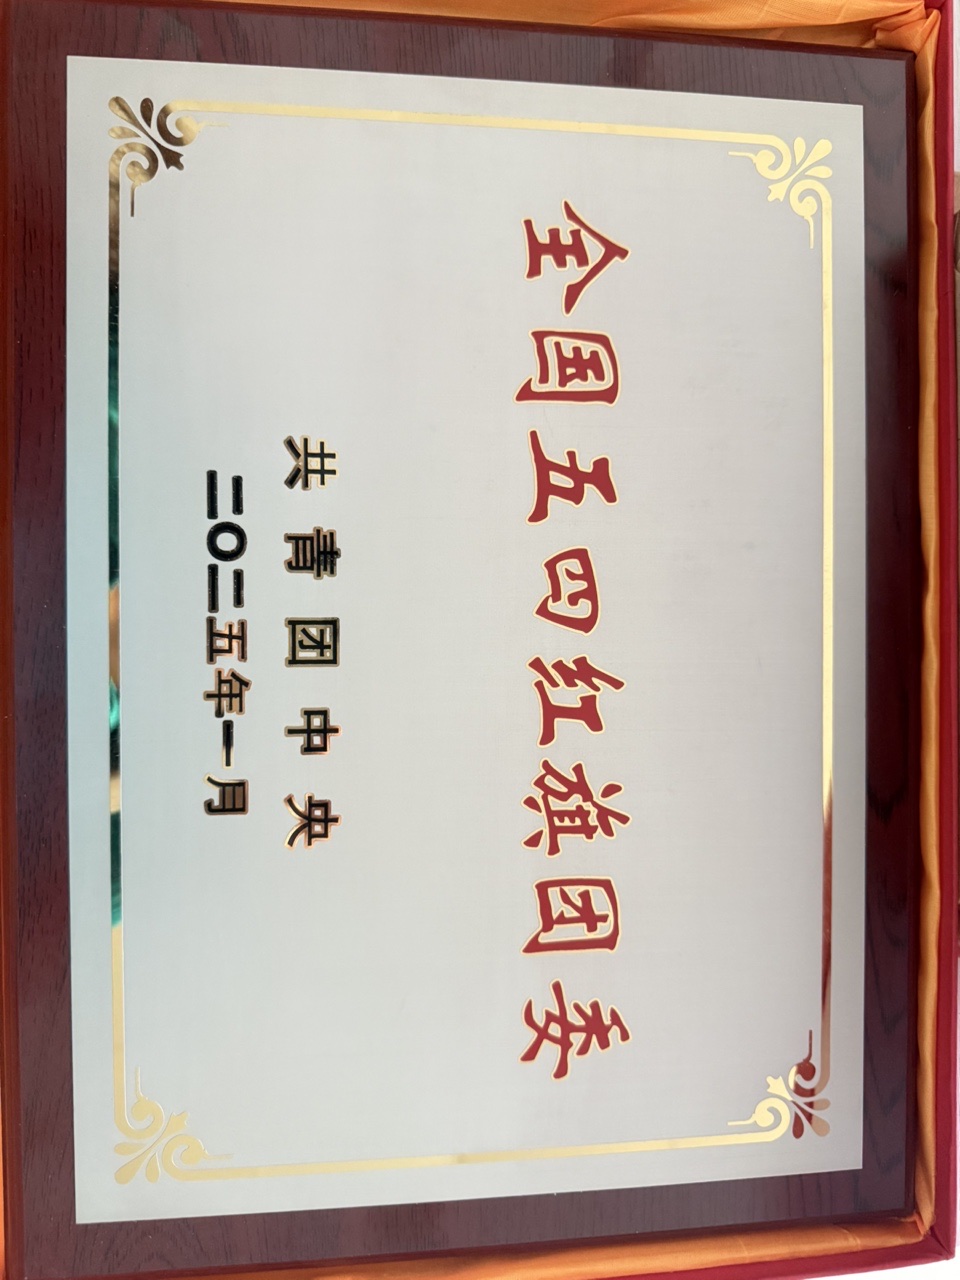 全国五四红旗团委
共青团中央
二〇二五年一月